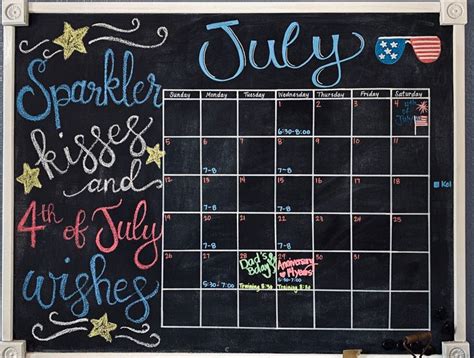 July
Sparkler
kisses
and
4th of July
wishes
Sunday Monday Tuesday Wednesday Thursday Friday Saturday
1 2 3 4
4th of July
6:30-8:00
5 6 7 8 9 10 11
7-8 7-8
12 13 14 15 16 17 18
7-8 7-8
Kol
19 20 21 22 23 24 25
7-8 7-8
26 27 28 29 30 31
Dad's Bday! Anniversary
5:30-7:00 Training 8:30 Training 8:30